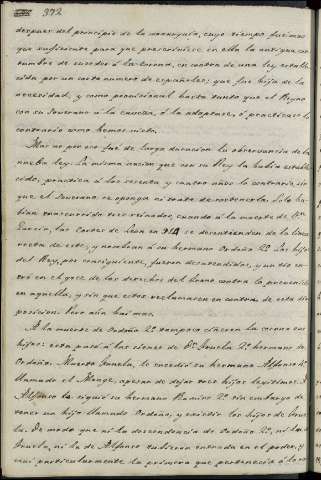 372
despues del principio de la monarquia, cuyo tiempo fué mas
que suficiente para que prescribiese en ella la antigua cos-
tumbre de suceder á la corona, en contra de una ley estable-
cida por un corto numero de españoles; que fué hija de la
necesidad, y como provisional hasta tanto que el Reyno
con su Soberano á la cabeza, ó la adoptase, ó practicase lo
contrario como hemos visto.
Mas no por eso fué de larga duracion la observancia de la
nueba ley. La misma nacion que con su Rey la habia estable-
cido, practica á los sesenta y cuatro años lo contrario, sin
que el Soberano se oponga ni trate de sostenerla. Solo ha-
bian transcurrido tres reinados, cuando á la muerte de Dn.
Garcia, las Cortes de Leon en 914 se desentienden de la linea
recta de este, y nombran á su hermano Ordoño 2º. Los hijos
del Rey, por consiguiente, fueron desatendidos, y un tio en-
tró en el goce de los derechos del trono contra lo prevenido
en aquella, y sin que estos reclamasen en contra de esta dis-
posicion. Pero aún hay mas.
A la muerte de Ordoño 2º tampoco ciñeron la corona sus
hijos: esta pasó á las sienes de Dn. Fruela 2º hermano de
Ordoño. Muerto Fruela, le sucedió su hermano Alfonso 4º
llamado el Monge, apesar de dejar tres hijos legitimos. A
Alfonso le siguió su hermano Ramiro 2º sin embargo de
tener un hijo llamado Ordoño, y existir los hijos de Frue-
la. De modo que ni la descendencia de Ordoño 2º, ni la de
Fruela, ni la de Alfonso tubieron entrada en el poder, y
mui particularmente la primera que pertenecia á la